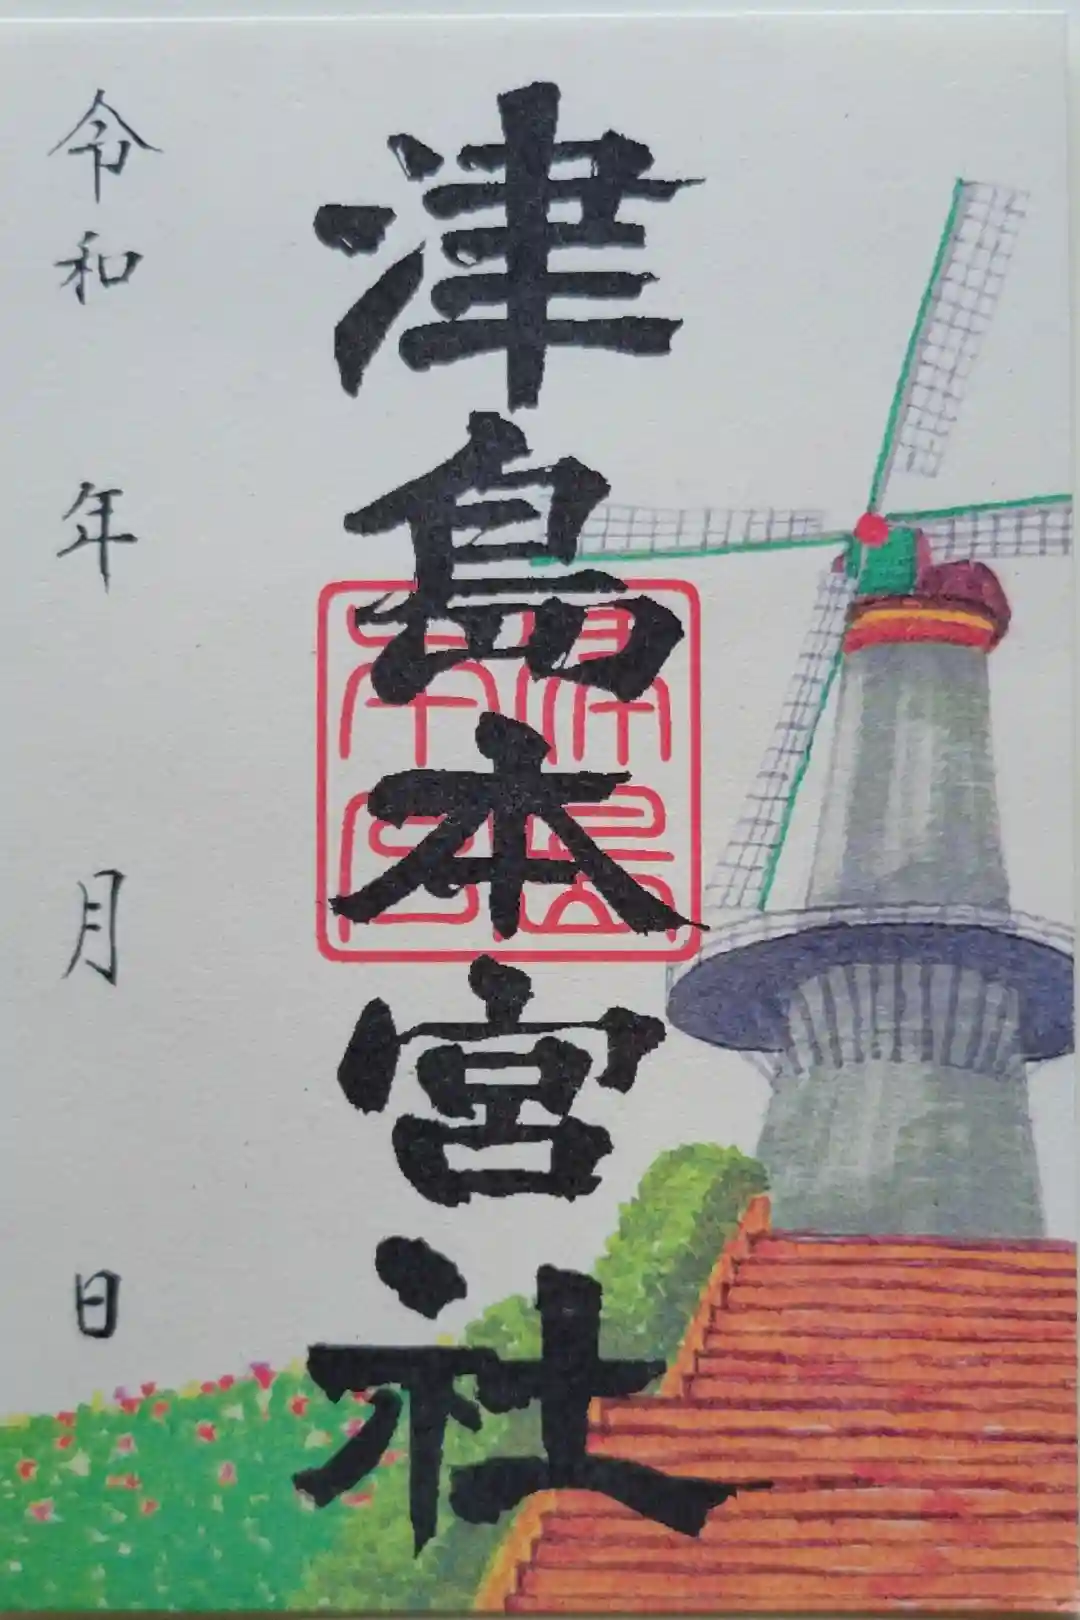 津島本宮社
令和 年 月 日